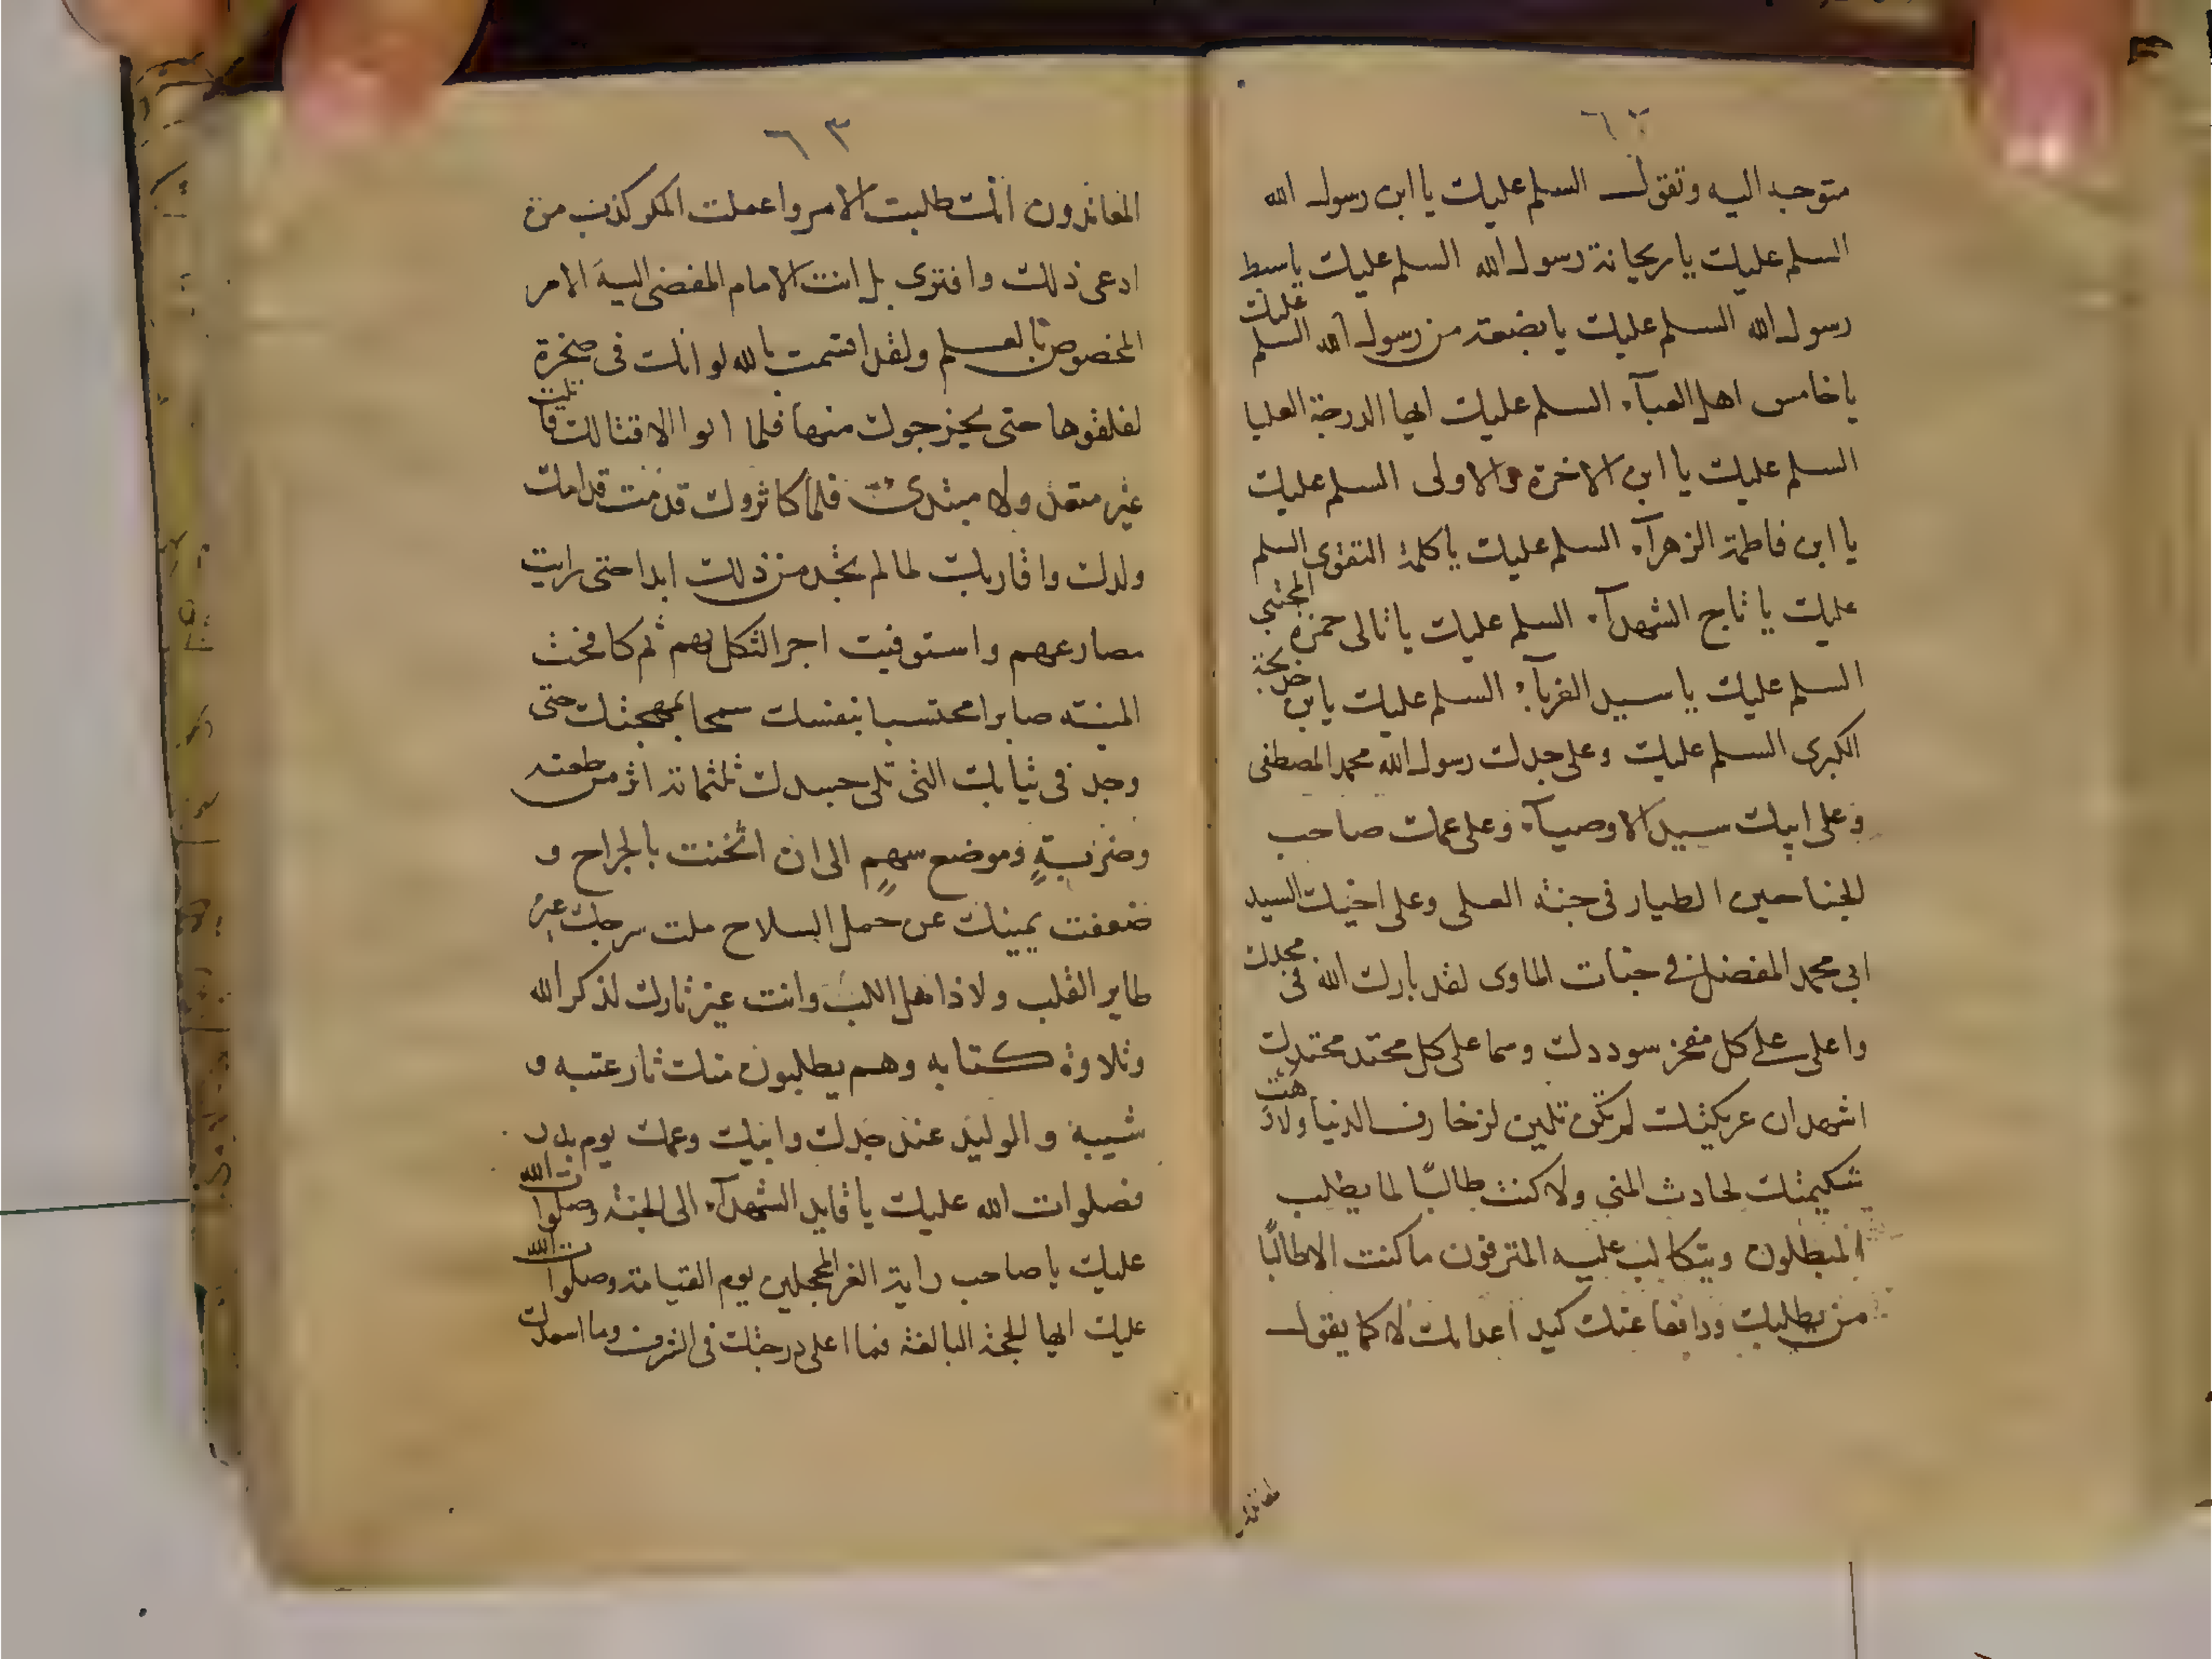 ٦٢
متوجه اليه وتقول السلم عليك يا ابن رسول الله
السلم عليك يا ريحانة رسول الله السلم عليك يا سبط
رسول الله السلم عليك يا بضعة من رسول الله السلم عليك
يا خامس اهل العبآء السلم عليك ايها الدرجة العليا
السلم عليك يا ابن الاخرة والاولى السلم عليك
يا ابن فاطمة الزهرآء السلم عليك يا كلمة التقوى السلم
عليك يا تاج الشهدآء السلم عليك يا تالى حمزة المجتبى
السلم عليك يا سيد الغربآء السلم عليك يا بن خديجة
الكبرى السلم عليك وعلى جدك رسول الله محمد المصطفى
وعلى ابيك سيد الاوصيآء وعلى عمك صاحب
الجناحين الطيار فى جنة العلى وعلى اخيك السيد
ابى محمد المفضل فى جنات الماوى لقد بارك الله فى مجدك
واعلى على كل مفخر سوددك وسما على كل محتد محتدك
اشهد ان عريكتك لم تكن تلين لزخارف الدنيا ولا
شكيمتك لحادث المنى ولا كنت طالبًا لما يطلب
المبطلون ويتكالب عليه المترفون ما كنت الا طالبًا
من يطلبك ودافعا عنك كيد اعدائك لا كما يقول
٦٣
المعاندون انك طلبت الامر واعملت المكر كذب من
ادعى ذلك وافترى بل انت الامام المفضى اليه الامر
المخصوص بالعلم ولقد اقسمت بالله لو انك فى صخرة
لفلقوها حتى يخرجوك منها فلما ابوا الا قتالك قاتلت
غير متعد ولا مبتدئ فلما كاثروك قدمت قدامك
ولدك واقاربك لما لم تجد من ذلك ابدا حتى رايت
مصارعهم واستوفيت اجر الثكل بهم ثم كافحت
المنية صابرا محتسبا بنفسك سمحا بمهجتك حتى
وجد فى ثيابك التى تلى جسدك ثلثمائة اثر من طعنة
وضربةٍ وموضع سهمٍ الى ان اثخنت بالجراح و
ضعفت يمينك عن حمل السلاح ملت سرجك غير
طاير القلب ولا ذاهل اللب وانت غير تارك لذكر الله
وتلاوة كتابه وهم يطلبون منك ثار عتبه و
شيبة والوليد عند جدك وابيك وعمك يوم بدر
فصلوات الله عليك يا قايد الشهدآء الى الجنة وصلوات الله
عليك يا صاحب راية الغر المحجلين يوم القيامة وصلوات الله
عليك ايها الحجة البالغة فما اعلى درجتك فى الشرف وما اسعدك